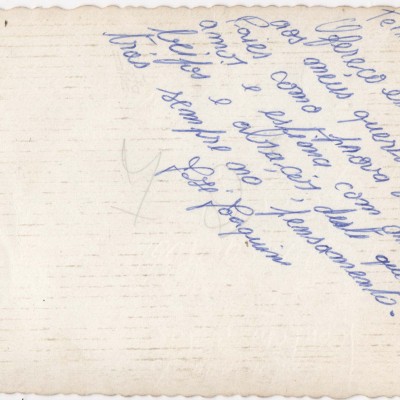 Ofereço
aos meus
Paies como prova
amor e estima com
beijos e abraçeis, deste que
trás sempre no pensamento.
José Joaquim